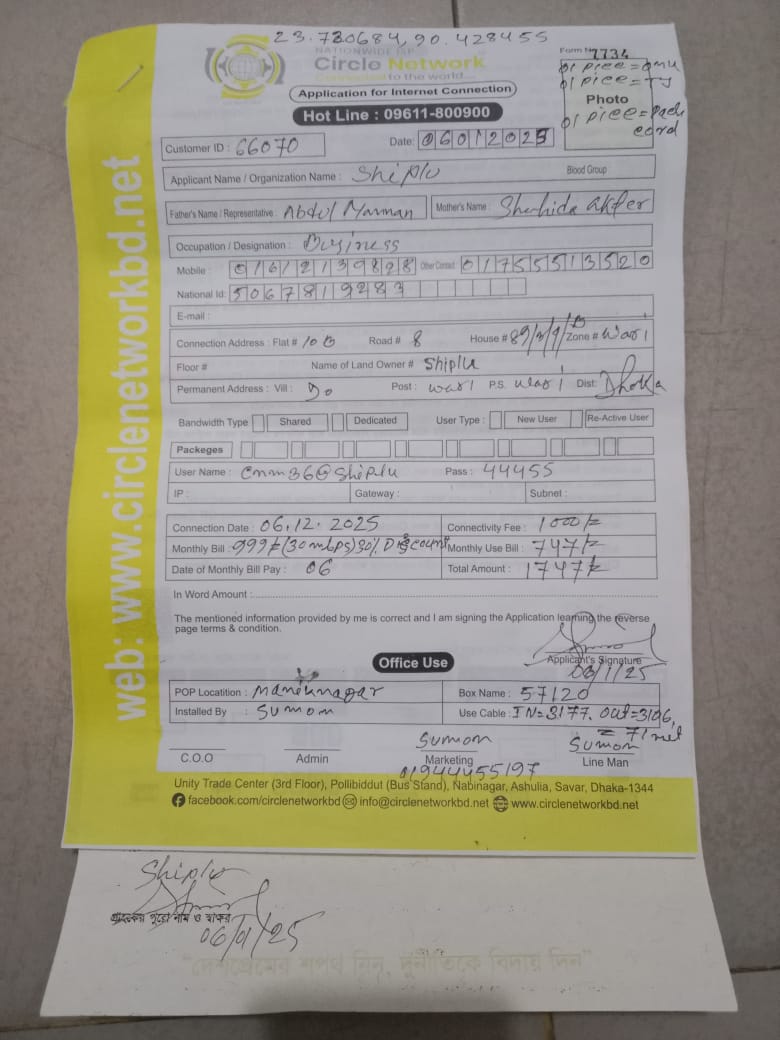 23.780684,90.428455
NATIONWIDE ISP
Circle Network
Connected to the world...
Form No 7734
01 piece=onu
01 piece=TJ
Photo
01 piece=pach cord
Application for Internet Connection
Hot Line : 09611-800900
web: www.circlenetworkbd.net
Customer ID : 66070 Date: 06012025
Applicant Name / Organization Name : Shiplu Blood Group
Father's Name / Representative : Abdul Mannan Mother's Name : Shahida akter
Occupation / Designation : Business
Mobile : 01612139828 Other Contact 01755513520
National Id: 5067819283
E-mail :
Connection Address : Flat # 10 B Road # 8 House # 89/3/9/B Zone # Wari
Floor # Name of Land Owner # Shiplu
Permanent Address : Vill : Do Post : wari P.S. wari Dist: Dhaka
Bandwidth Type Shared Dedicated User Type : New User Re-Active User
Packeges
User Name : cnm36@shiplu Pass : 44455
IP : Gateway : Subnet :
Connection Date : 06.12.2025 Connectivity Fee : 1000/=
Monthly Bill : 999/=(30mbps)30% Discount Monthly Use Bill : 747/=
Date of Monthly Bill Pay : 06 Total Amount : 1747/=
In Word Amount :
The mentioned information provided by me is correct and I am signing the Application learning the reverse
page terms & condition.
Applicant's Signature
06/1/25
Office Use
POP Locatition : Maniknagar Box Name : 57120
Installed By : Sumon Use Cable : IN=3177. Out=3106,
= 71 met
Sumon Sumon
C.O.O Admin Marketing Line Man
01944455197
Unity Trade Center (3rd Floor), Pollibiddut (Bus Stand), Nabinagar, Ashulia, Savar, Dhaka-1344
facebook.com/circlenetworkbd info@circlenetworkbd.net www.circlenetworkbd.net
Shiplu
গ্রাহকের পুরো নাম ও স্বাক্ষর
06/01/25
"দেশপ্রেমের শপথ নিন, দুর্নীতিকে বিদায় দিন"